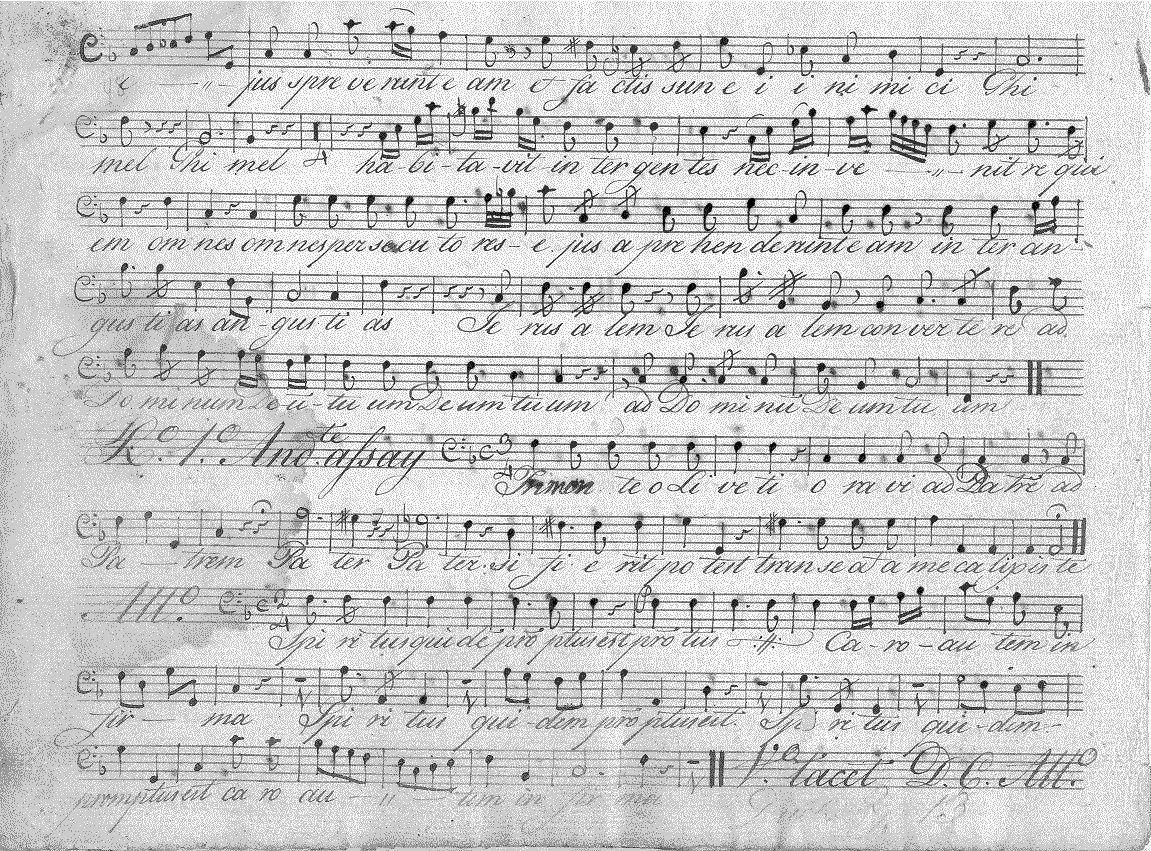 jus spre ve runt e am et fa ctis sun e i i ni mi ci Ghi -
mel Ghi mel ha-bi-ta-vit-in ter gen tes nec-in-ve - nit re qui
em om nes om nes per se cu to res - e. jus a pre hen de runt e am in ter an-
gus ti as an-gus ti as Je rus a lem Je rus a lem con ver te re ad
Do mi num De u-tu um De um tu um ad Do mi nū De um tu um
R.º 1.º And.te assay
te o Li ve ti o ra vi ad Pa trē ad
Pa - trem Pa ter Pa ter. si fi e rit po test tran se at a me ca lix is te
All.º
Spi ri tus qui de pro ptus est pro tus Ca-ro-au tem in
fir - ma Spi ri tus qui-dem pro ptus est. Spi ri tus qui-dem-
promptus est ca ro au - tem in fir ma
1.ª tacet D. C. All.º